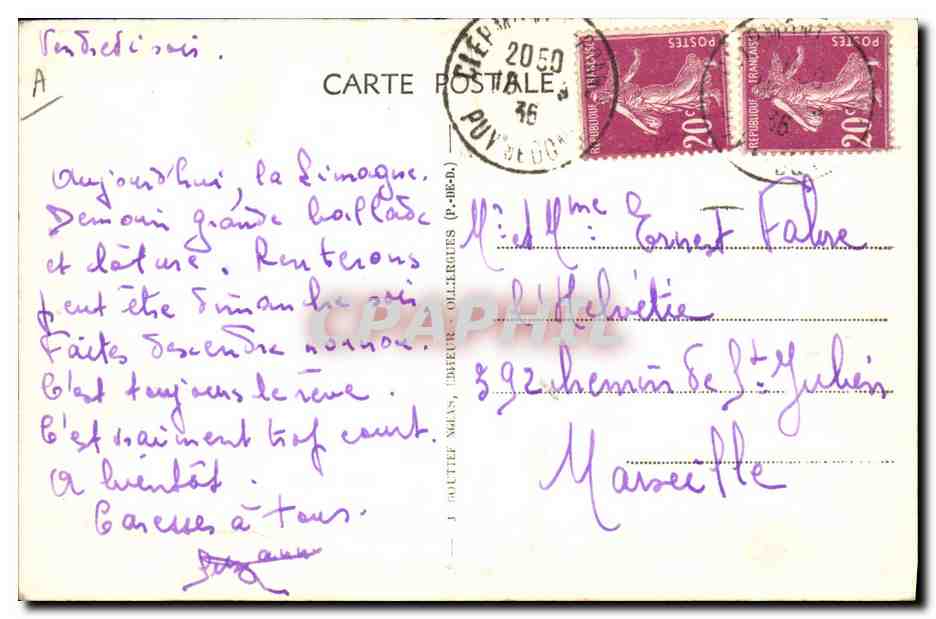 Vendredi soir.
A
CARTE POSTALE
2050
18
36
PUY DE DOM
REPUBLIQUE FRANÇAISE
POSTES
20c
REPUBLIQUE FRANÇAISE
POSTES
20c
36
Aujourd'hui, la Limagne.
Demain grande ballade
et clôture. Rentrerons
peut être dimanche soir
Faites descendre nounou.
C'est toujours le rêve.
C'est vraiment trop court.
A bientôt.
Caresses à tous.
GOUTTEFANGEAS, EDITEUR - OLLIERGUES (P.-DE-D.)
Mr et Mme Ernest Fabre
L'Helvétie
392 chemin de St Julien
Marseille
CPAPHIL